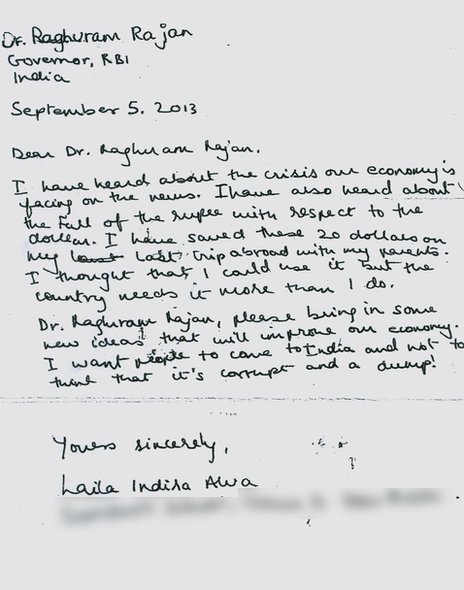 Dr. Raghuram Rajan
Governor, RBI
India
September 5, 2013
Dear Dr. Raghuram Rajan,
I have heard about the crisis our economy is
facing on the news. I have also heard about
the Fall of the rupee with respect to the
dollar. I have saved these 20 dollars on
my last trip abroad with my parents.
I thought that I could use it but the
country needs it more than I do.
Dr. Raghuram Rajan, please bring in some
new ideas that will improve our economy.
I want people to come to India and not to
think that it's corrupt and a dump!
Yours sincerely,
Laila Indira Alva